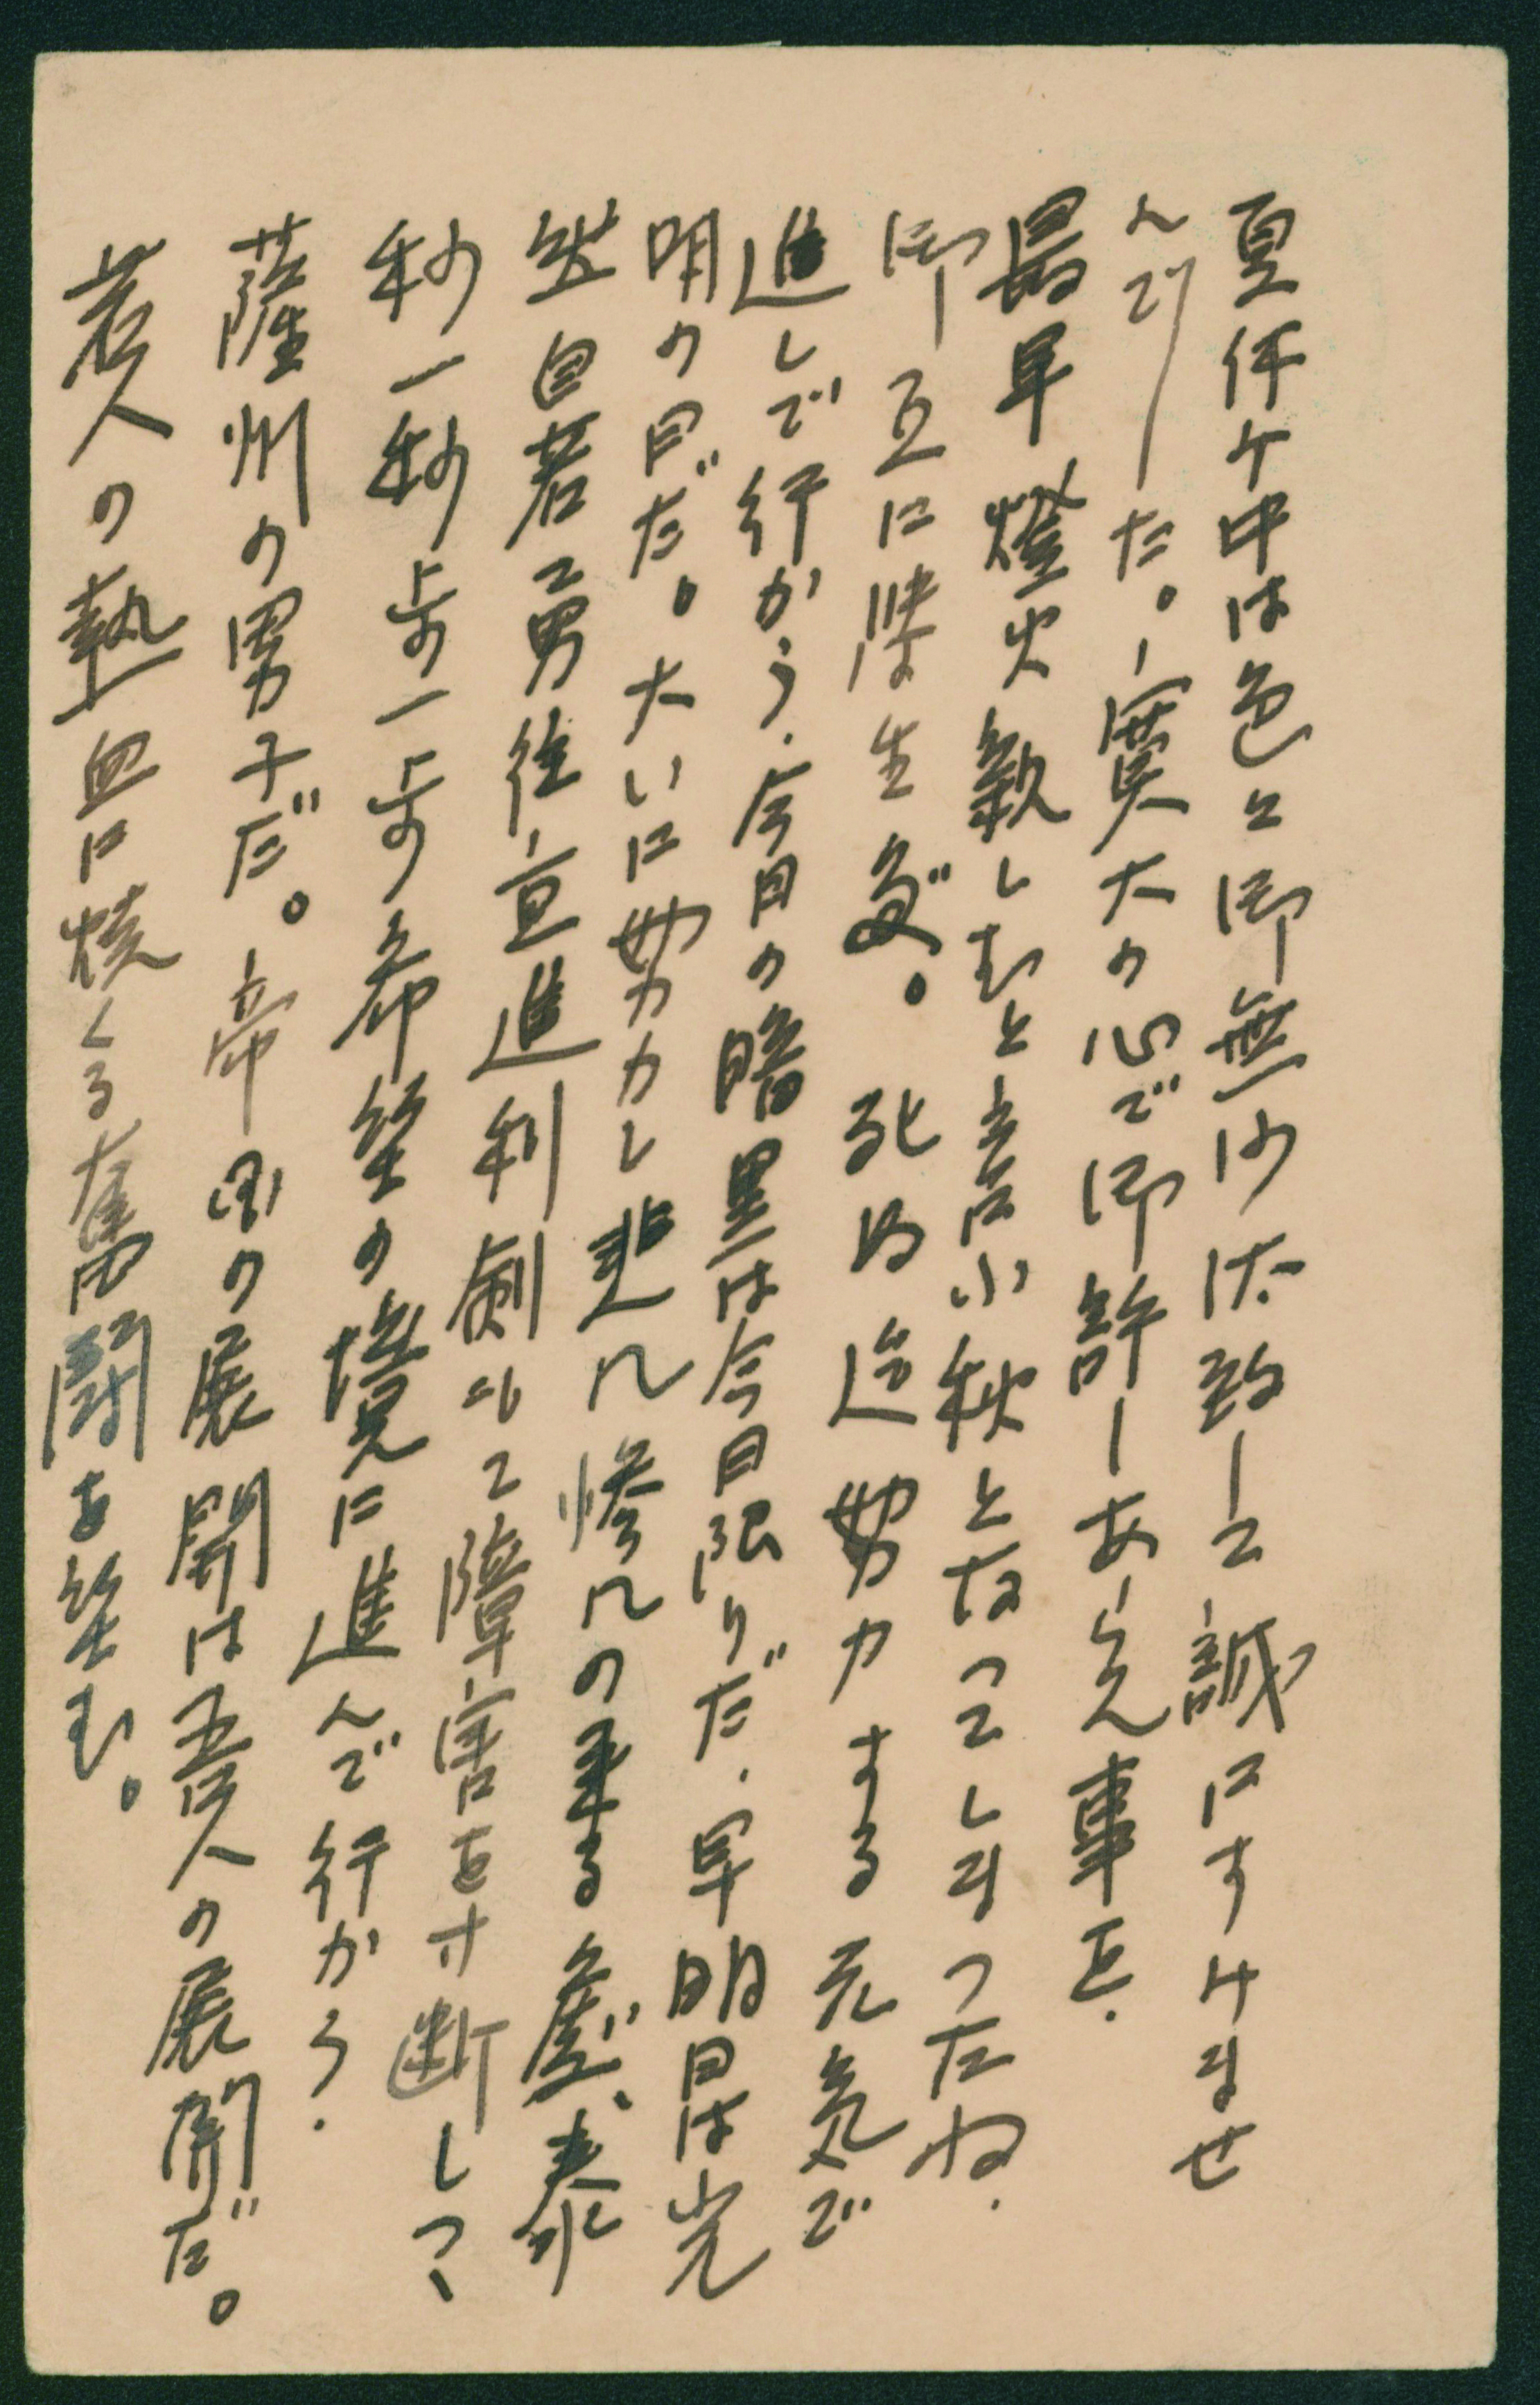 夏休ケ中は色々御無沙汰致して誠にすけませ
んでした。寛大の心で御許しあらん事を.
最早燈火親しむと言ふ秋となつてしまつたね.
御互に学生だ。死ぬ迄努力する元気で
進しで行かう.今日の暗黒は今日限りだ.早明日は光
明の日だ。大いに努力し悲しん惨んの来る処、泰
然自若勇往直進利剣もて障害を寸断しつゝ
秒一秒歩一歩希望の境に進んで行かう.
薩州の男子だ。帝国の展開は吾人の展開だ。
若人の熱血に燒くる奮闘を望む。